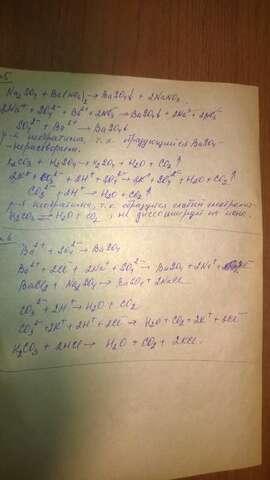 Na₂SO₄ + Ba(NO₃)₂ → BaSO₄↓ + 2NaNO₃
2Na⁺ + SO₄²⁻ + Ba²⁺ + 2NO₃⁻ → BaSO₄↓ + 2Na⁺ + 2NO₃⁻
SO₄²⁻ + Ba²⁺ → BaSO₄↓
р-я необратима, т.к. образующийся BaSO₄ -
- нерастворим.
K₂CO₃ + H₂SO₄ → K₂SO₄ + H₂O + CO₂↑
2K⁺ + CO₃²⁻ + 2H⁺ + SO₄²⁻ → 2K⁺ + SO₄²⁻ + H₂O + CO₂↑
CO₃²⁻ + 2H⁺ → H₂O + CO₂↑
р-я необратима, т.к. образуется слабый
H₂CO₃ ⇌ H₂O + CO₂, не на ионы.
Ba²⁺ + SO₄²⁻ → BaSO₄
Ba²⁺ + 2Cl⁻ + 2Na⁺ + SO₄²⁻ → BaSO₄ + 2Na⁺ +
BaCl₂ + Na₂SO₄ → BaSO₄ + 2NaCl
CO₃²⁻ + 2H⁺ → H₂O + CO₂
CO₃²⁻ + 2K⁺ + 2H⁺ + 2Cl⁻ → H₂O + CO₂ + 2K⁺ + 2Cl⁻
K₂CO₃ + 2HCl → H₂O + CO₂ + 2KCl